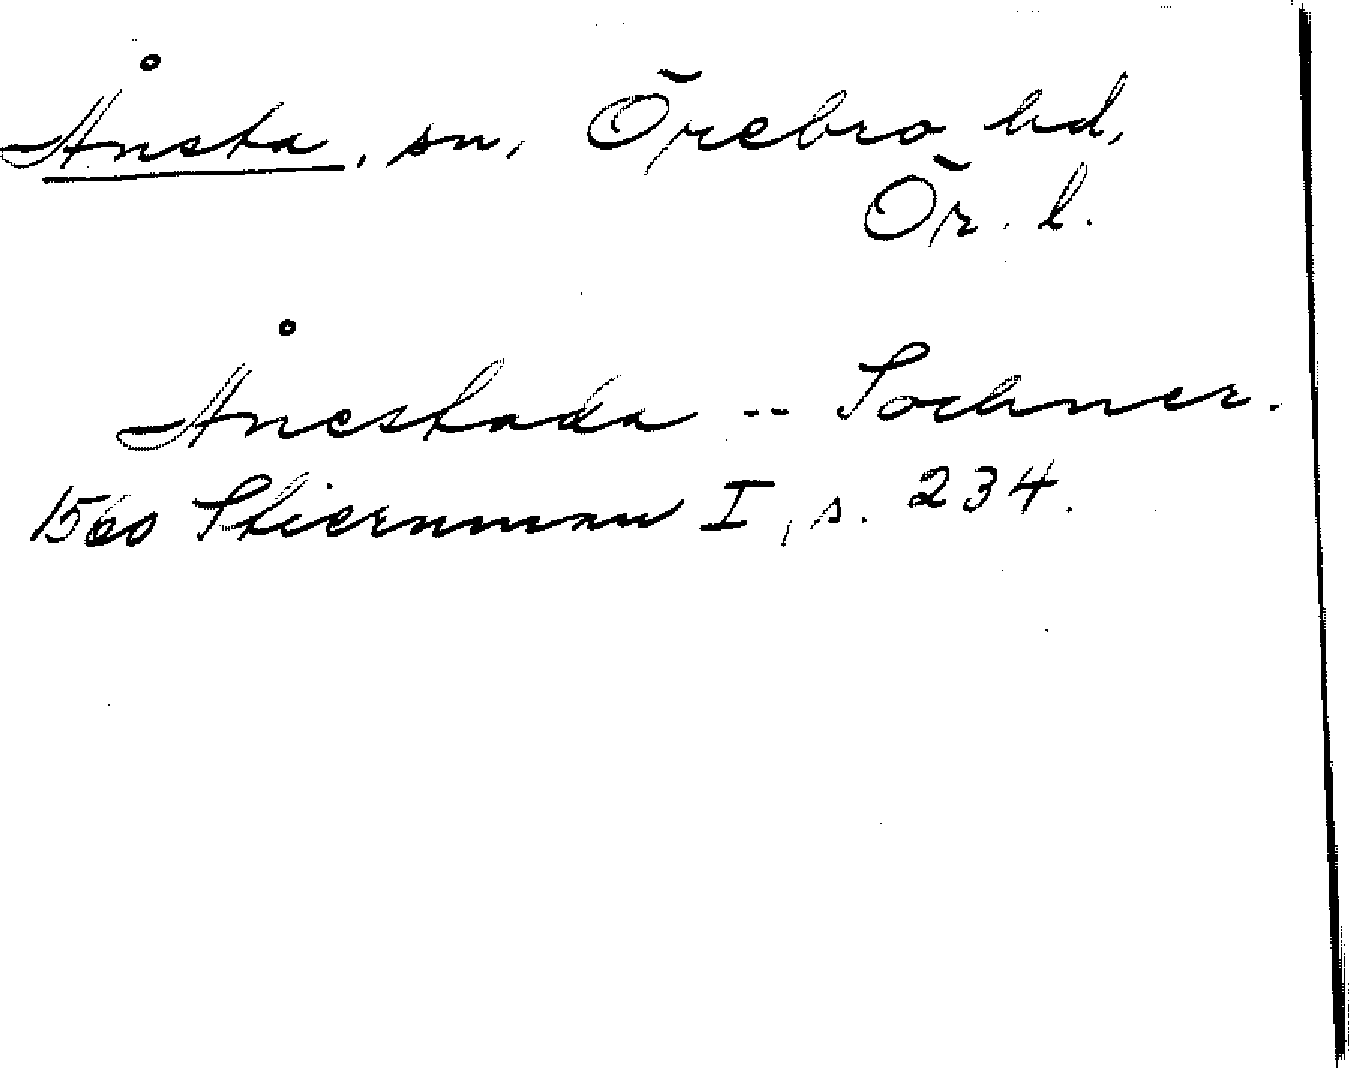 Ånsta, sn, Örebro hd,
Ör. l.
Ånestada -- Sochner.
1560 Stiernman I, s. 234.